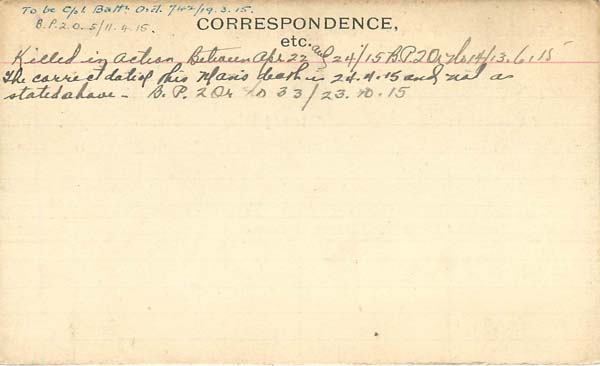 To be Cpl Battn Ord. 742/19.3.15.
B.P.2.O. 5/11.4.15.
CORRESPONDENCE,
etc.
Killed in action Between Apr 22 and 24/15 B.P.2 Or No 14/13.6.15
The correct date of this Man's death is 24.4.15 and not as
stated above - B.P. 2 Or No 33/23.10.15